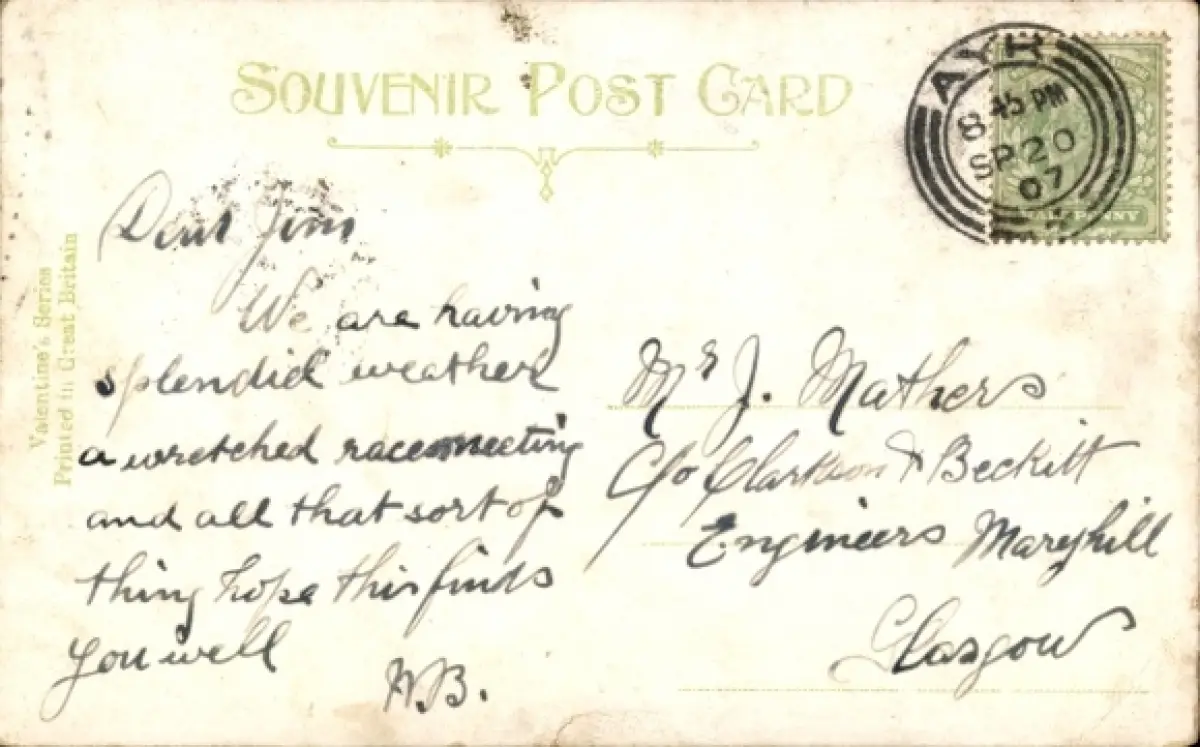 SOUVENIR POST CARD
AYR
8.45 PM
SP 20
07
HALF PENNY
Valentine's Series
Printed in Great Britain
Dear Jim
We are having
splendid weather
a wretched racemeeting
and all that sort of
thing hope this finds
you well
Mr J. Mathers
C/o Clarkson & Beckitt
Engineers Maryhill
Glasgow